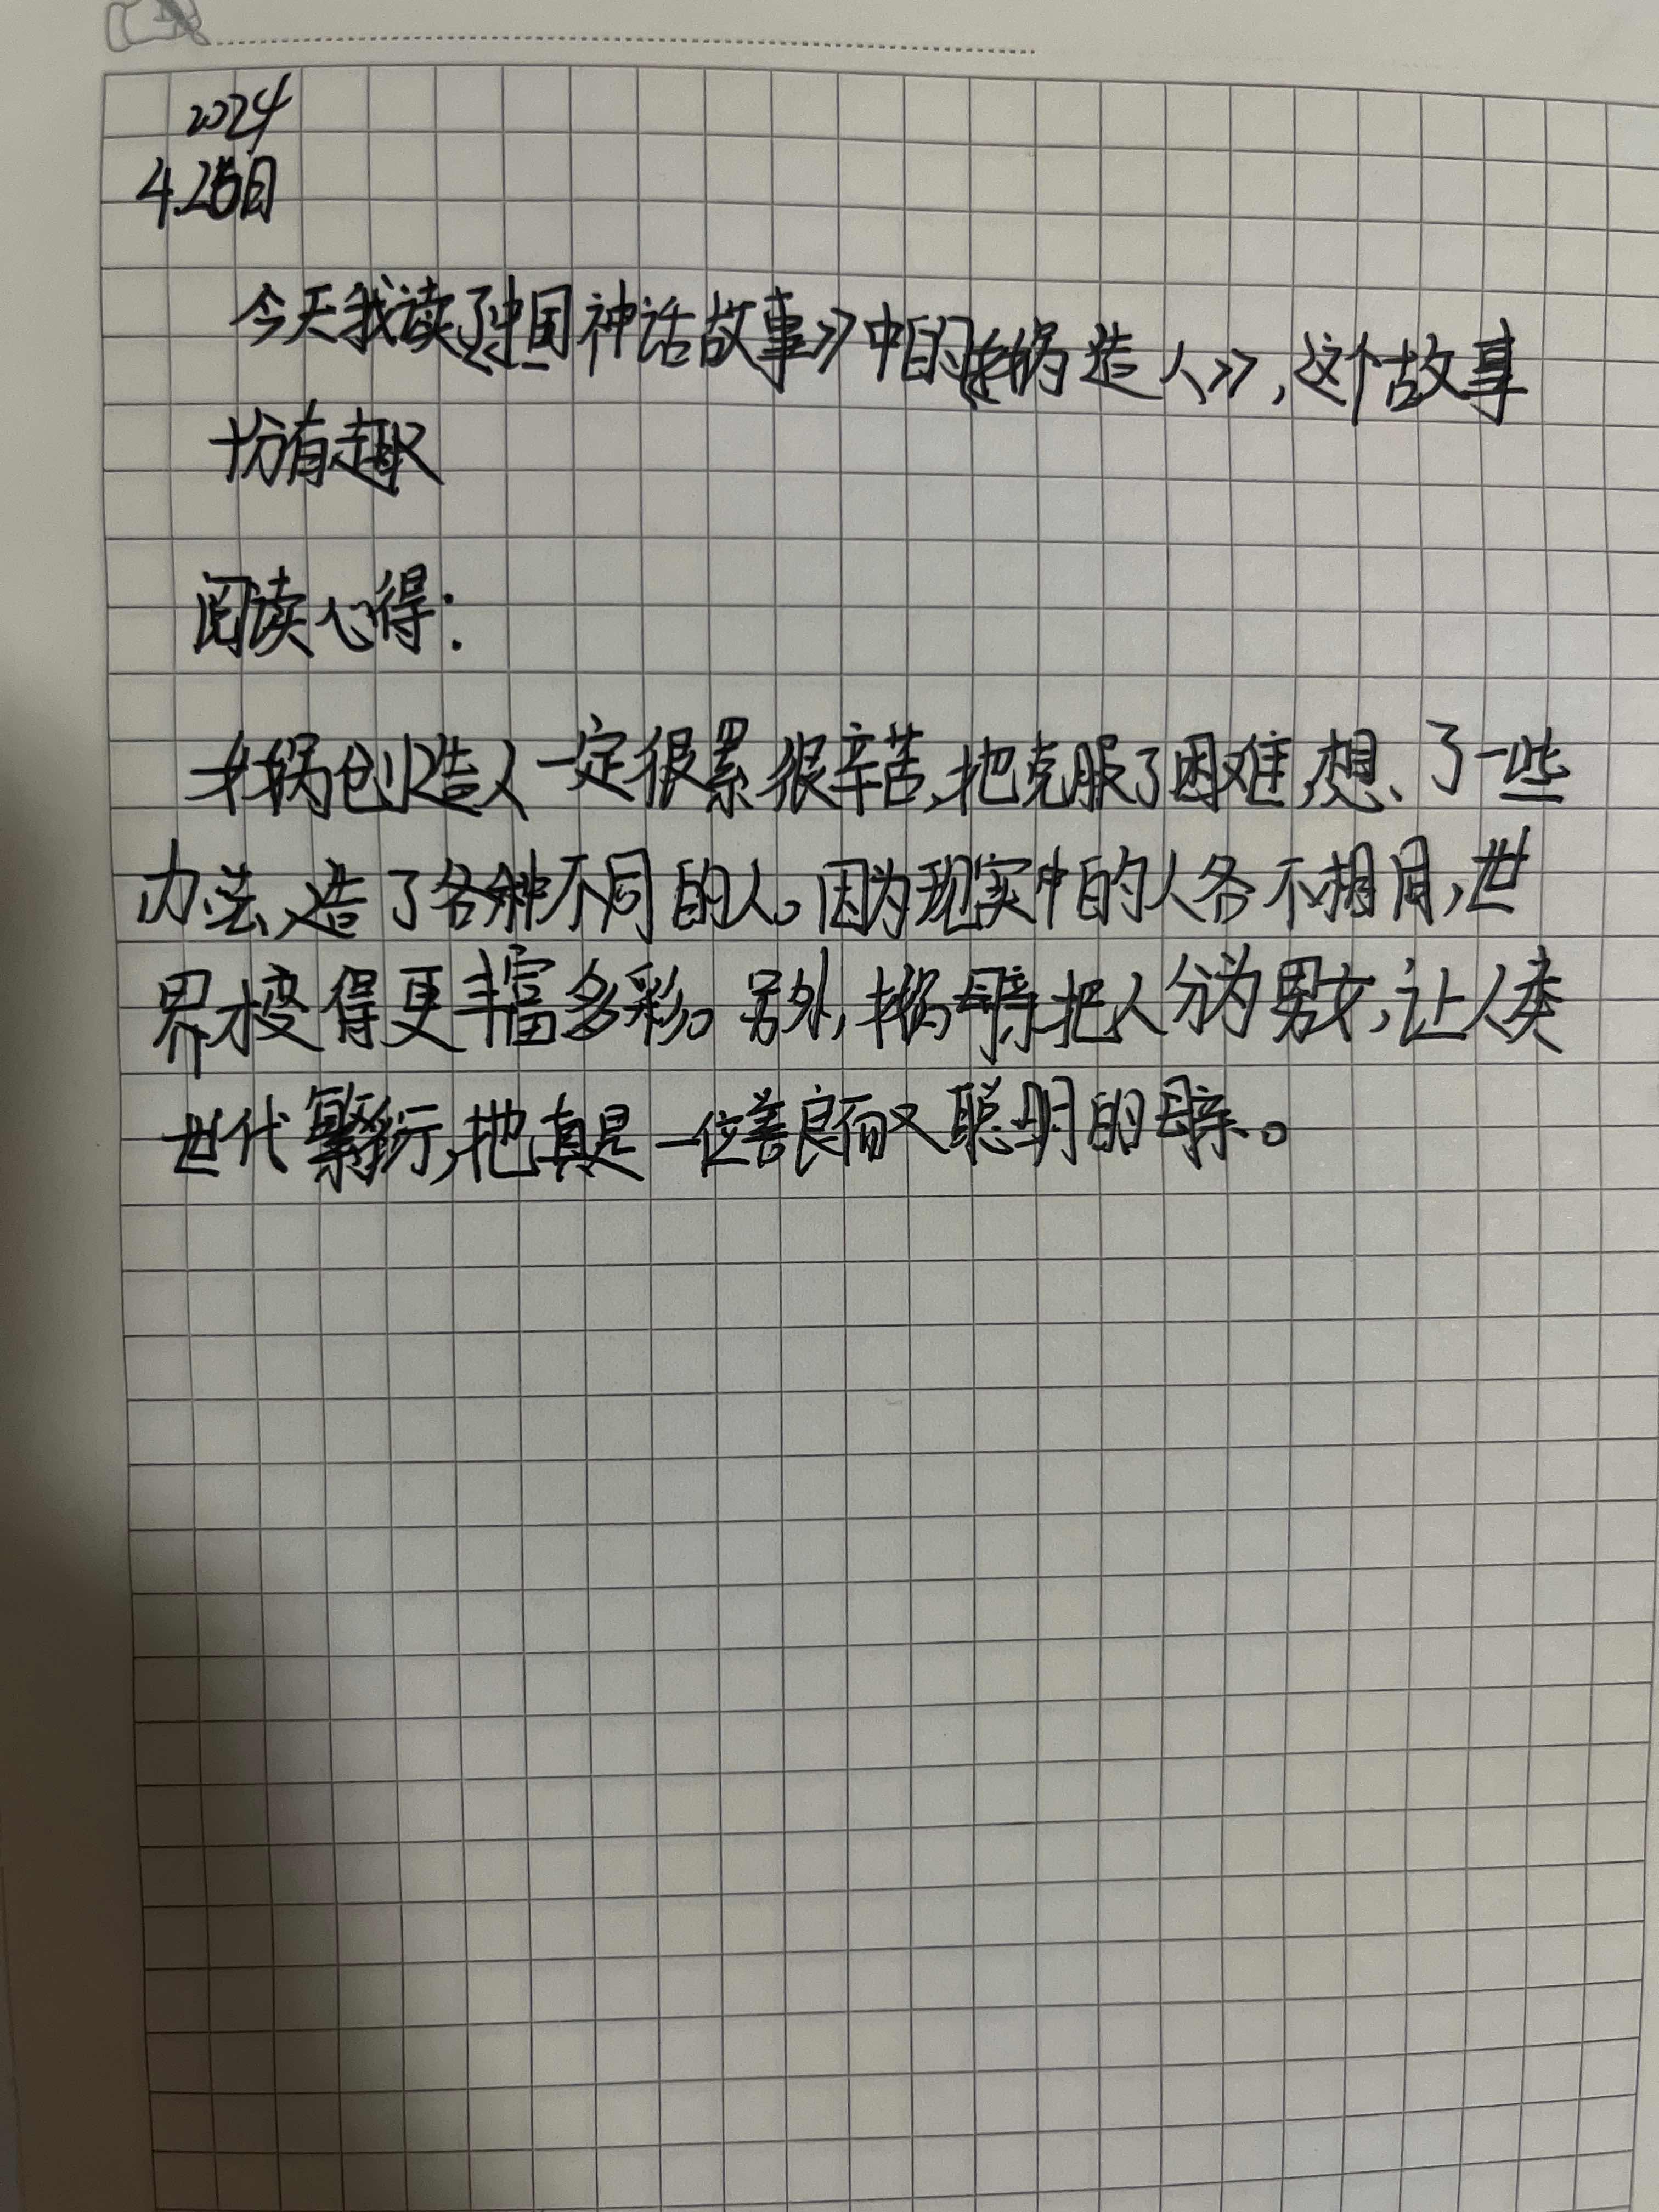 2024
4.25日
今天我读了《中国神话故事》中的《女娲造人》,这个故事
十份有趣
阅读心得:
女娲创造人一定很累很辛苦,她克服了困难,想了一些
办法,造了各种不同的人。因为现实中的人各不相同,世
界才变得更丰富多彩。另外,女娲母亲把人分为男女,让人类
世代繁衍,她真是一位善良而又聪明的母亲。